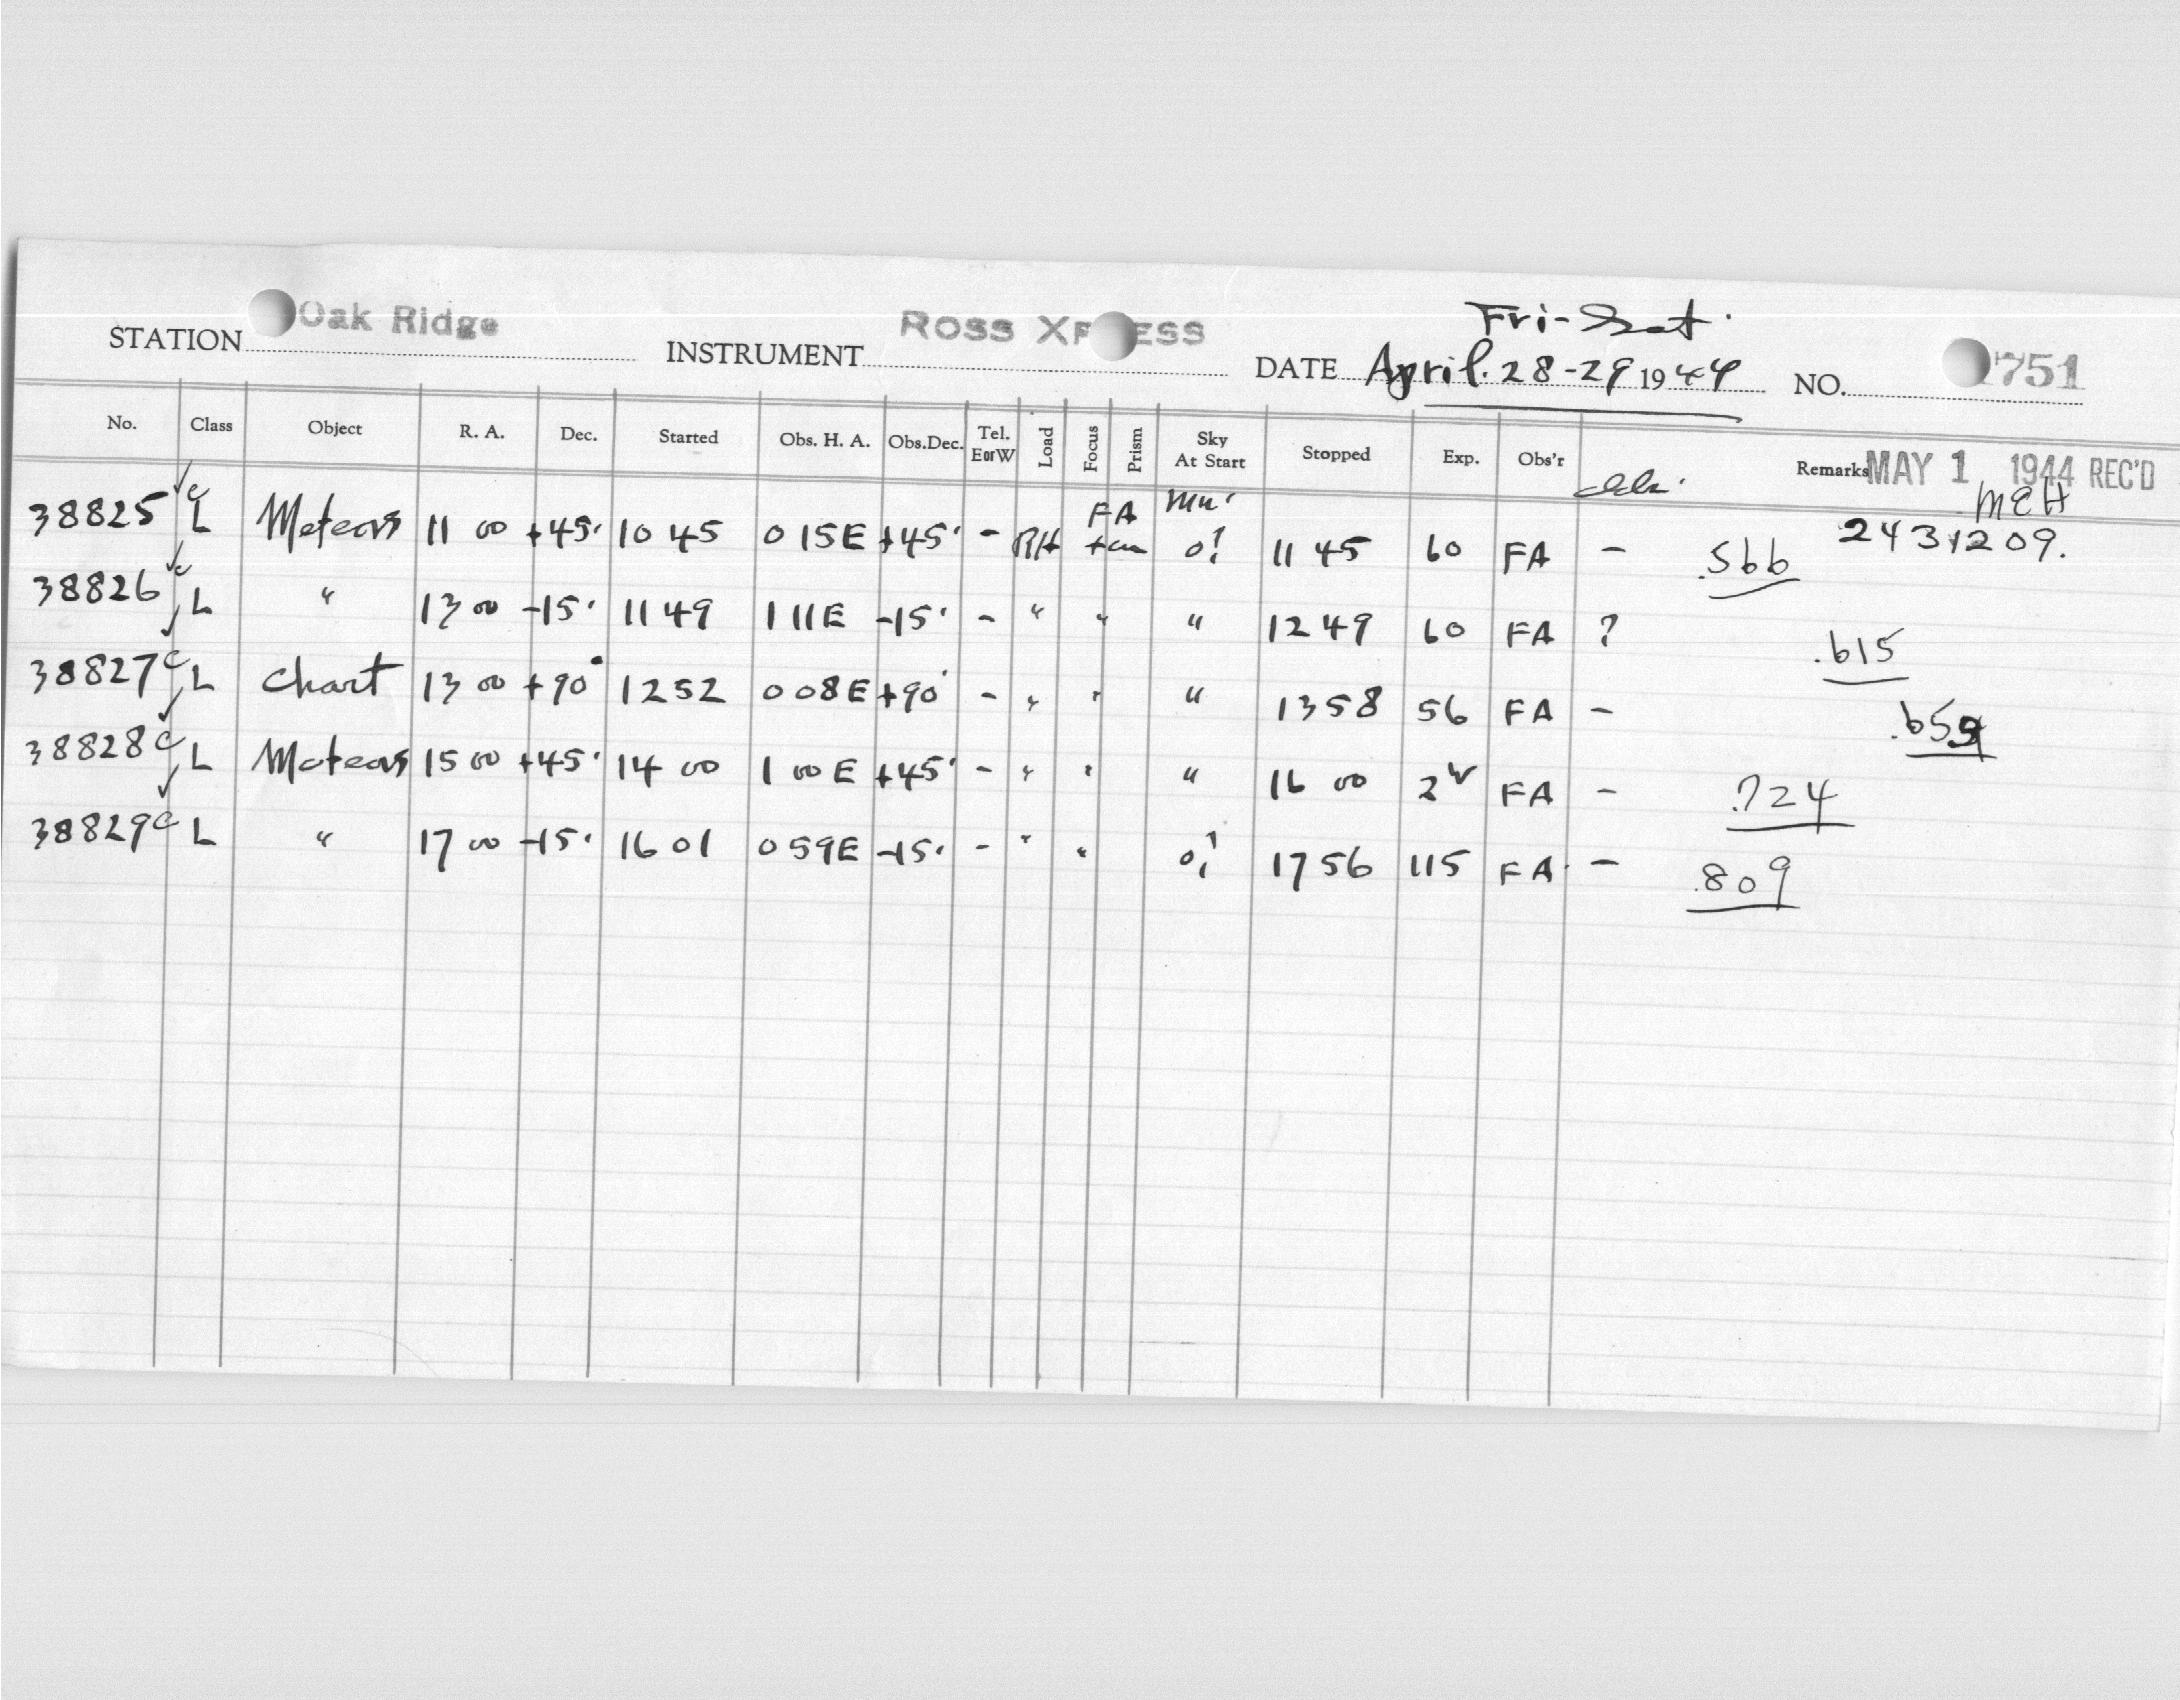 Fri-Sat.
STATION Oak Ridge INSTRUMENT ROSS XP ESS DATE April. 28-29 1944 NO. 751
No. Class Object R. A. Dec. Started Obs. H. A. Obs.Dec. Tel. EorW Load Focus Prism Sky At Start Stopped Exp. Obs'r Remarks MAY 1 1944 REC'D
MEH
38825 c L Meteors 11 00 +45° 10 45 0 15E +45° - RH FA 0? 11 45 60 FA - .566 2431209.
38826 c L " 13 00 -15° 11 49 1 11E -15° - " " " 12 49 60 FA ? .615
38827 c L Chart 13 00 +90° 12 52 0 08E +90° - " " " 13 58 56 FA - .659
38828 c L Meteors 15 00 +45° 14 00 1 00E +45° - " " " 16 00 2h FA - .724
38829 c L " 17 00 -15° 16 01 0 59E -15° - " " 0? 17 56 115 FA - .809